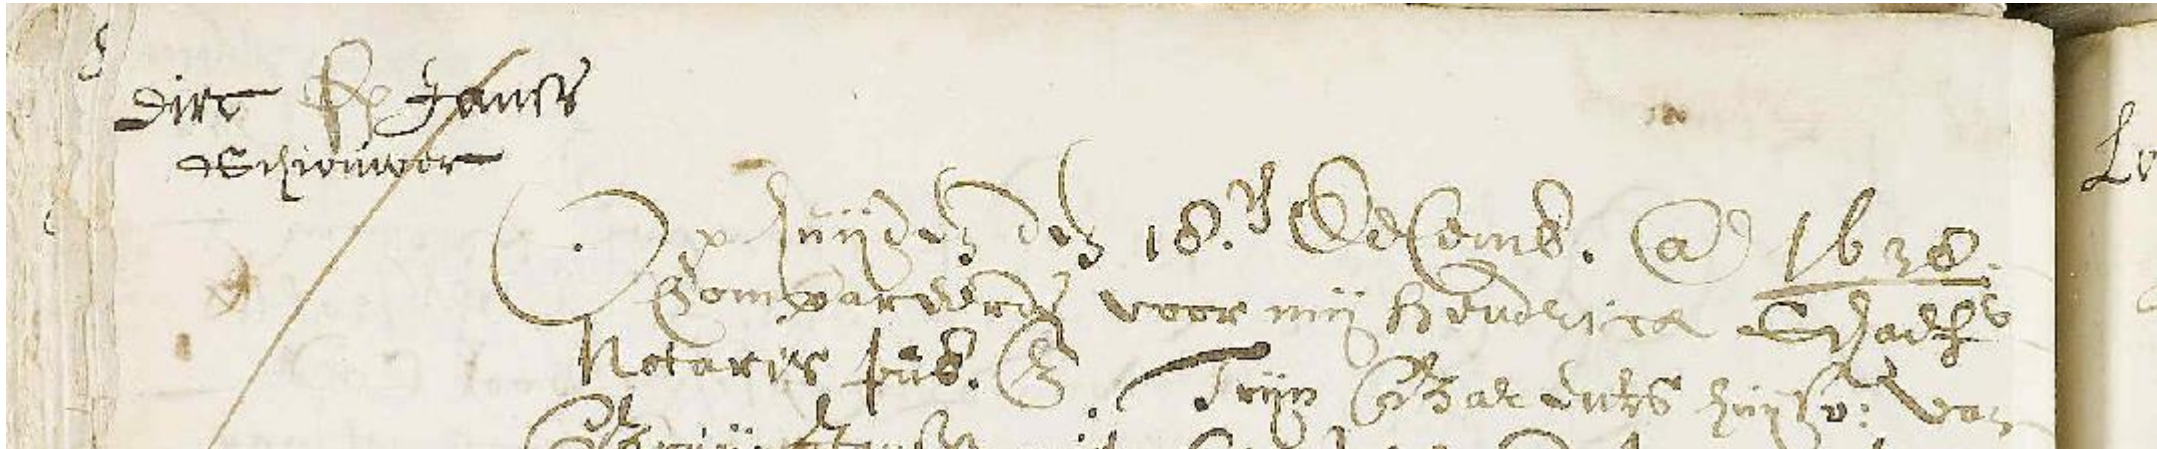 Dirc Jansz
Schouwer
Op huijden den 18.en Decemb. ao 1638.
Compareerde voor mij Hendrick Schaeff
Notaris pub. Trijn Barents huijsv: van